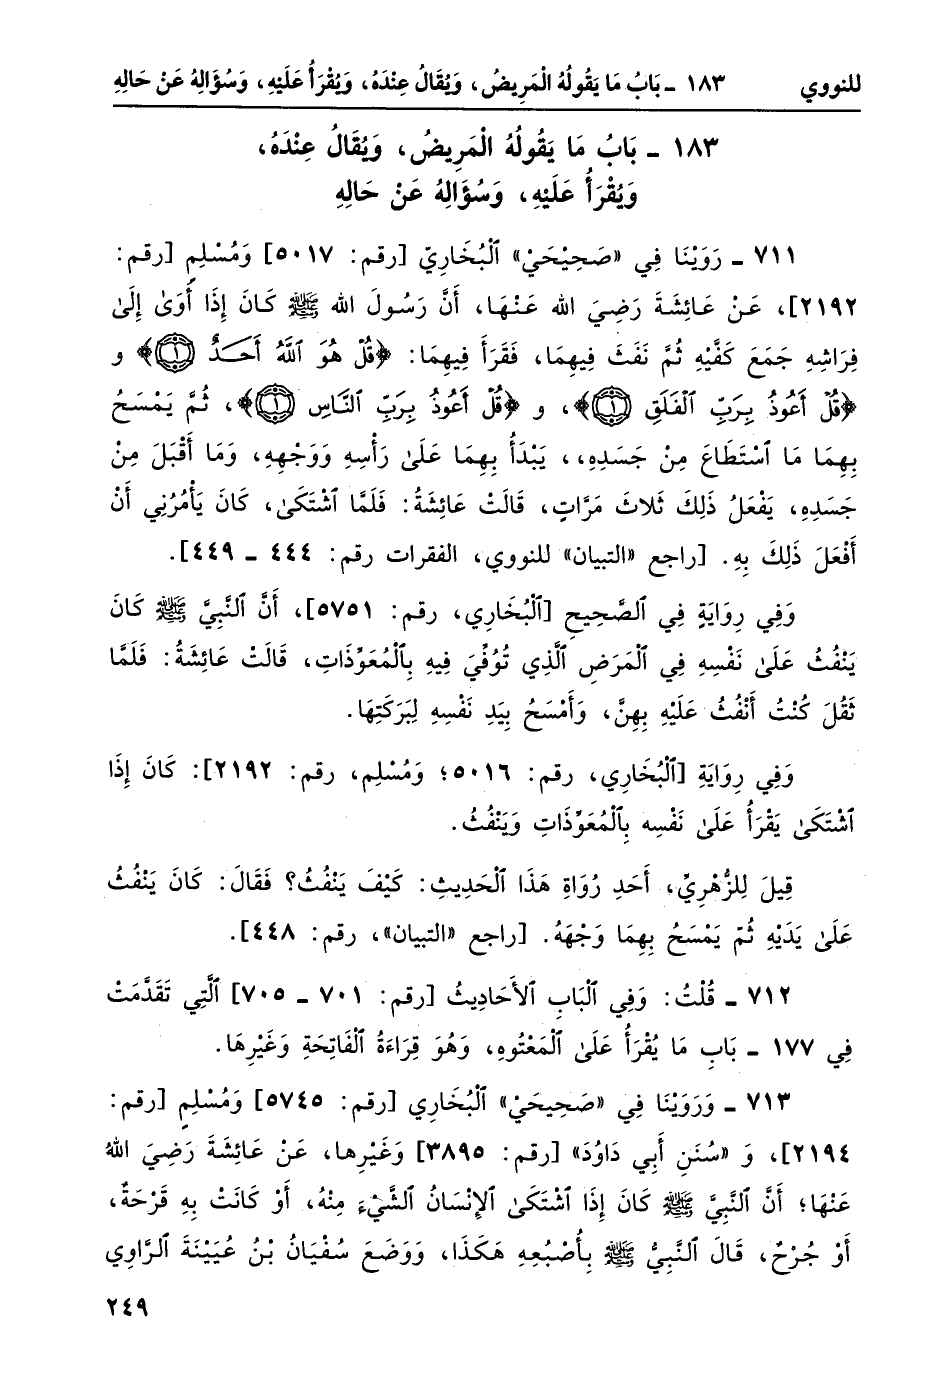 للنووي ١٨٣ ـ بَابُ مَا يَقُولُهُ الْمَرِيضُ، وَيُقَالُ عِنْدَهُ، وَيُقْرَأُ عَلَيْهِ، وَسُؤَالِهِ عَنْ حَالِهِ
١٨٣ ـ بَابُ مَا يَقُولُهُ الْمَرِيضُ، وَيُقَالُ عِنْدَهُ،
وَيُقْرَأُ عَلَيْهِ، وَسُؤَالِهِ عَنْ حَالِهِ
٧١١ ـ رَوَيْنَا فِي «صَحِيْحَيْ» ٱلْبُخَارِيّ [رقم: ٥٠١٧] وَمُسْلِمٍ [رقم:
٢١٩٢]، عَنْ عَائِشَةَ رَضِيَ الله عَنْهَا، أَنَّ رَسُولَ الله ﷺ كَانَ إِذَا أَوَىٰ إِلَىٰ
فِرَاشِهِ جَمَعَ كَفَّيْهِ ثُمَّ نَفَثَ فِيهِمَا، فَقَرَأَ فِيهِمَا: ﴿قُلْ هُوَ ٱللَّهُ أَحَدٌ ١﴾ و
﴿قُلْ أَعُوذُ بِرَبِّ ٱلْفَلَقِ ١﴾، و ﴿قُلْ أَعُوذُ بِرَبِّ ٱلنَّاسِ ١﴾، ثُمَّ يَمْسَحُ
بِهِمَا مَا ٱسْتَطَاعَ مِنْ جَسَدِهِ،، يَبْدَأُ بِهِمَا عَلَىٰ رَأْسِهِ وَوَجْهِهِ، وَمَا أَقْبَلَ مِنْ
جَسَدِهِ، يَفْعَلُ ذَلِكَ ثَلَاثَ مَرَّاتٍ، قَالَتْ عَائِشَةُ: فَلَمَّا ٱشْتَكَىٰ، كَانَ يَأْمُرُنِي أَنْ
أَفْعَلَ ذَلِكَ بِهِ. [راجع «التبيان» للنووي، الفقرات رقم: ٤٤٤ ـ ٤٤٩].
وَفِي رِوَايَةٍ فِي ٱلصَّحِيحِ [ٱلْبُخَارِي، رقم: ٥٧٥١]، أَنَّ ٱلنَّبِيَّ ﷺ كَانَ
يَنْفُثُ عَلَىٰ نَفْسِهِ فِي ٱلْمَرَضِ ٱلَّذِي تُوُفِّيَ فِيهِ بِٱلْمُعَوِّذَاتِ، قَالَتْ عَائِشَةُ: فَلَمَّا
ثَقُلَ كُنْتُ أَنْفُثُ عَلَيْهِ بِهِنَّ، وَأَمْسَحُ بِيَدِ نَفْسِهِ لِبَرَكَتِهَا.
وَفِي رِوَايَةِ [ٱلْبُخَارِي، رقم: ٥٠١٦؛ وَمُسْلِم، رقم: ٢١٩٢]: كَانَ إِذَا
ٱشْتَكَىٰ يَقْرَأُ عَلَىٰ نَفْسِهِ بِٱلْمُعَوِّذَاتِ وَيَنْفُثُ.
قِيلَ لِلزُّهْرِيِّ، أَحَدِ رُوَاةِ هَذَا ٱلْحَدِيثِ: كَيْفَ يَنْفُثُ؟ فَقَالَ: كَانَ يَنْفُثُ
عَلَىٰ يَدَيْهِ ثُمّ يَمْسَحُ بِهِمَا وَجْهَهُ. [راجع «التبيان»، رقم: ٤٤٨].
٧١٢ ـ قُلْتُ: وَفِي ٱلْبَابِ ٱلأَحَادِيثُ [رقم: ٧٠١ ـ ٧٠٥] ٱلَّتِي تَقَدَّمَتْ
فِي ١٧٧ ـ بَابِ مَا يُقْرَأُ عَلَىٰ ٱلْمَعْتُوهِ، وَهُوَ قِرَاءَةُ ٱلْفَاتِحَةِ وَغَيْرِهَا.
٧١٣ ـ وَرَوَيْنَا فِي «صَحِيحَيْ» ٱلْبُخَارِي [رقم: ٥٧٤٥] وَمُسْلِمٍ [رقم:
٢١٩٤]، وَ «سُنَنِ أَبِي دَاوُدَ» [رقم: ٣٨٩٥] وَغَيْرِها، عَنْ عَائِشَةَ رَضِيَ اللهُ
عَنْهَا؛ أَنَّ ٱلنَّبِيَّ ﷺ كَانَ إِذَا ٱشْتَكَىٰ ٱلإِنْسَانُ ٱلشَّيْءَ مِنْهُ، أَوْ كَانَتْ بِهِ قَرْحَةٌ،
أَوْ جُرْحٌ، قَالَ ٱلنَّبِيُّ ﷺ بِأُصْبُعِهِ هَكَذَا، وَوَضَعَ سُفْيَانُ بْنُ عُيَيْنَةَ ٱلرَّاوِي
٢٤٩